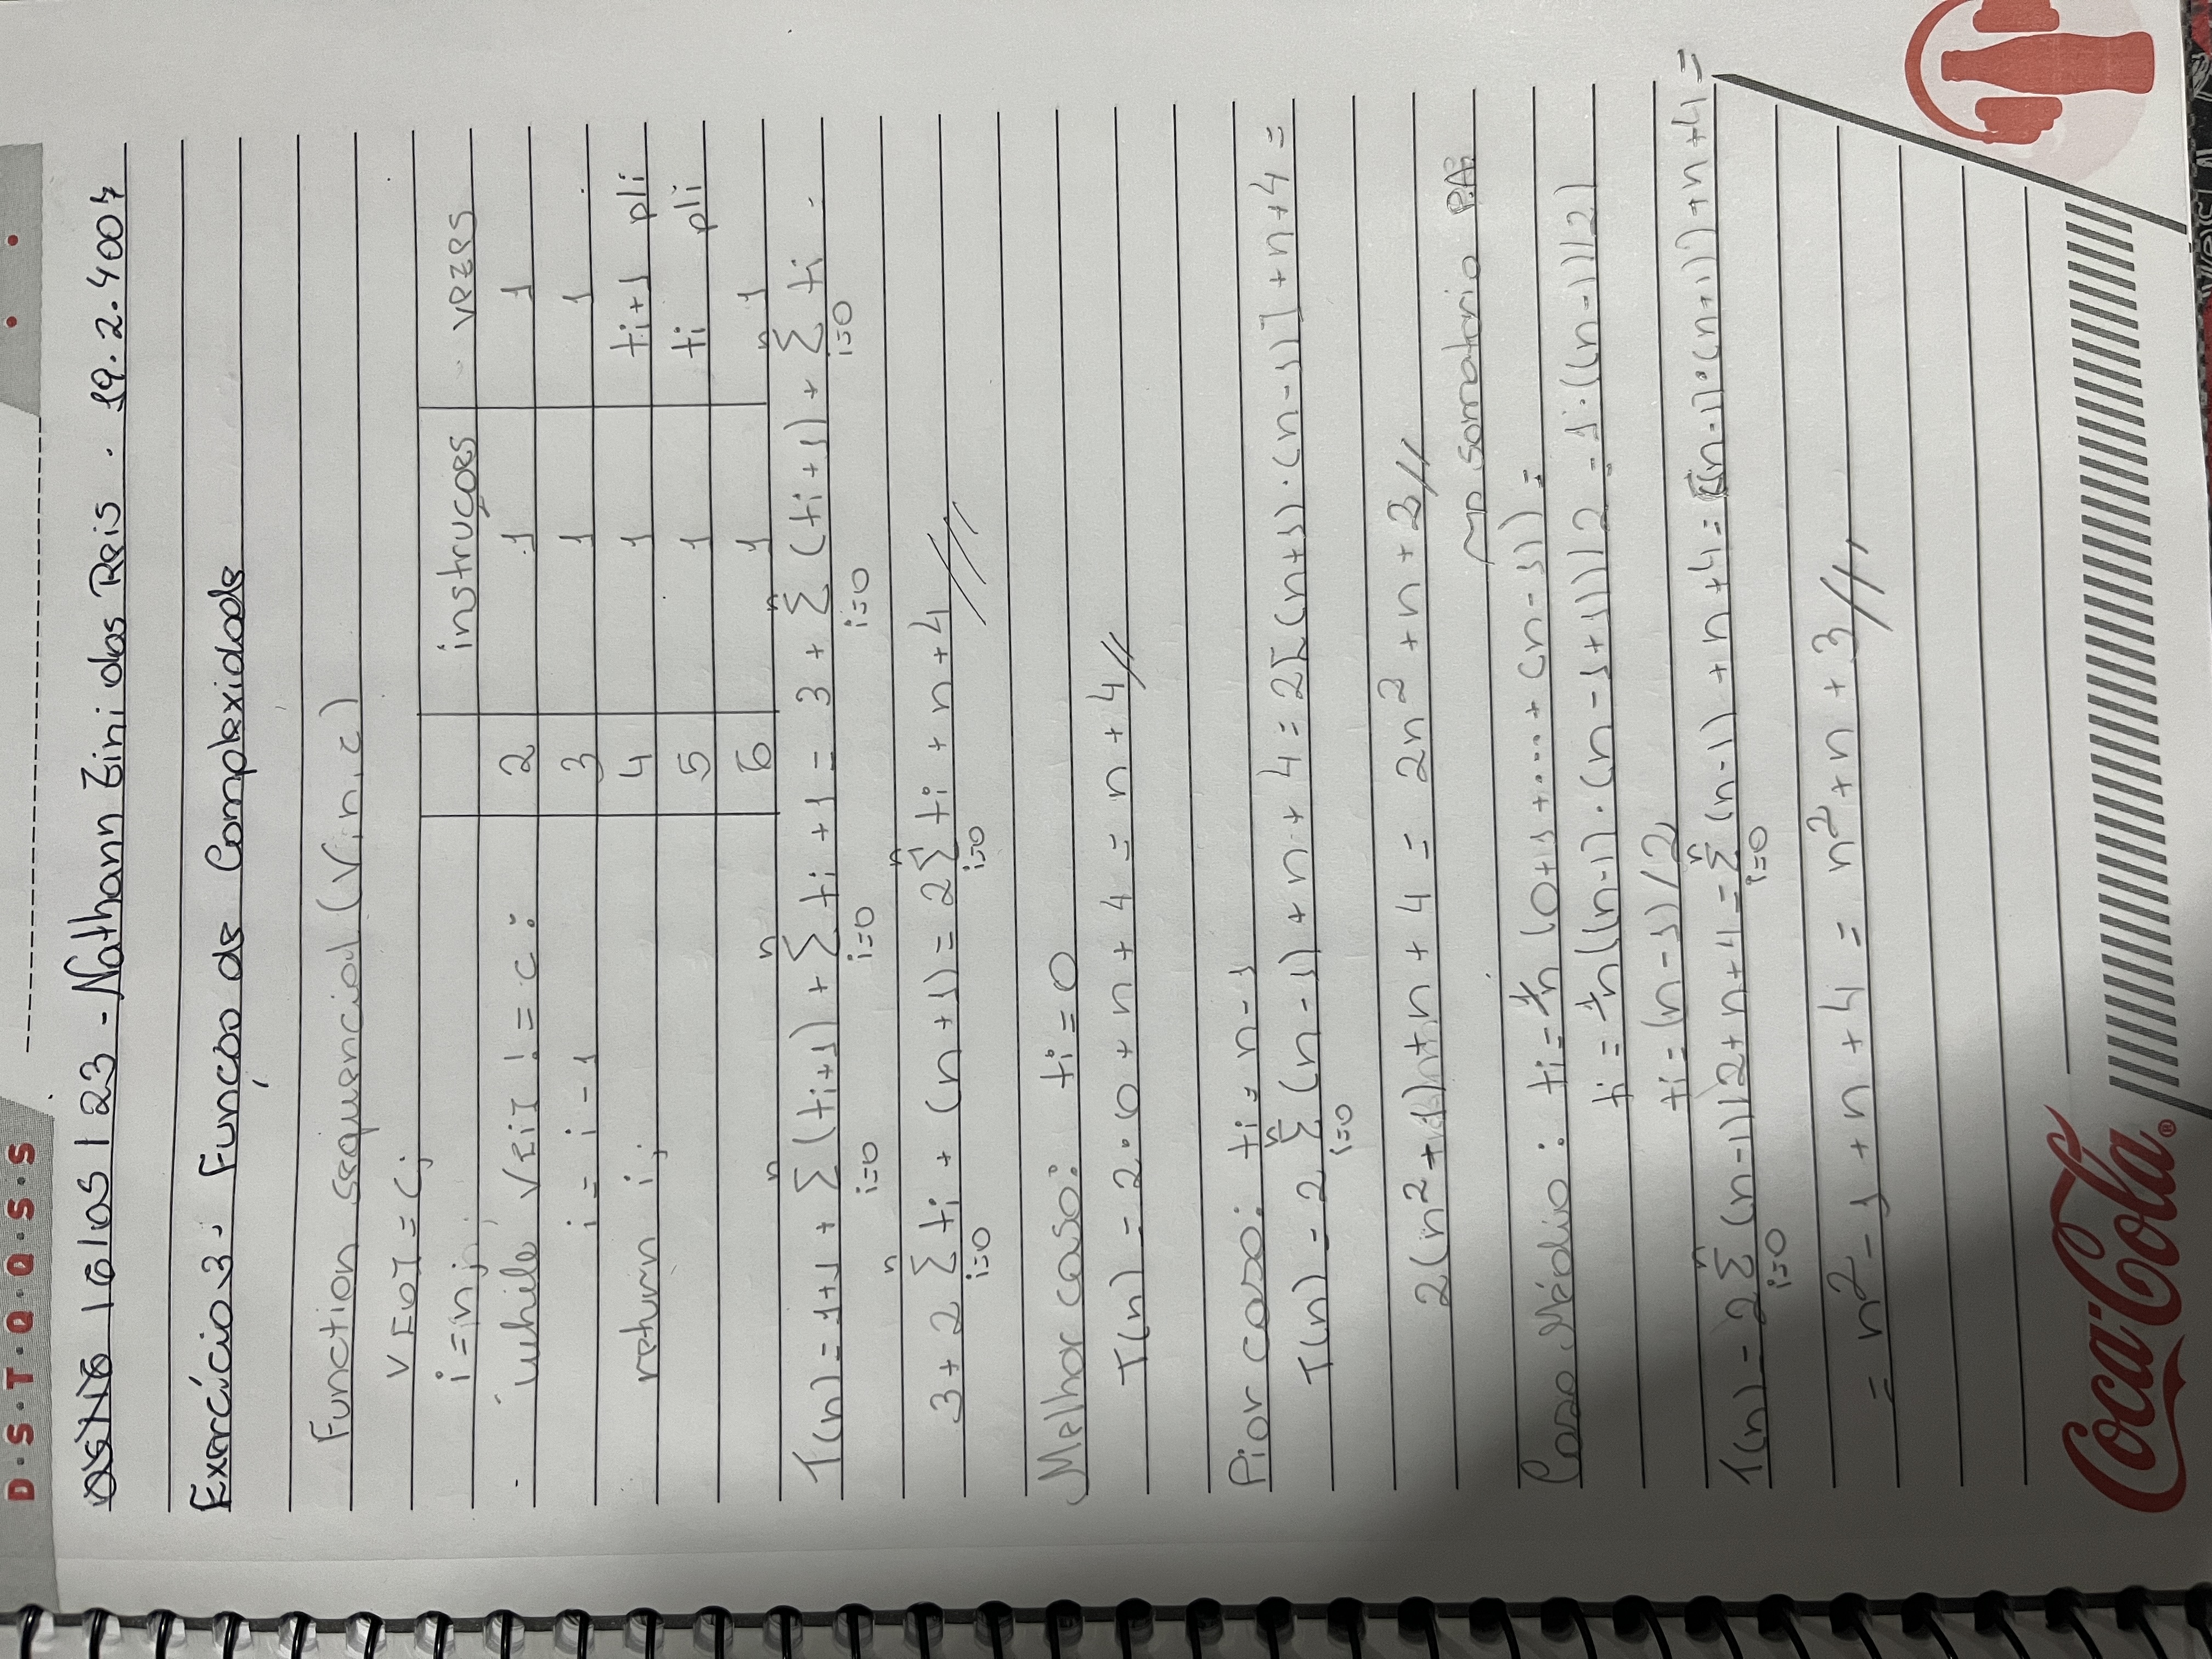 D·S·T·Q·Q·S·S
16/05/23 - Nathann Zini dos Reis . 19.2.4007
Exercício 3. Função de Complexidade
Function sequencial (V, n, c)
V[0] = c;
i = n;
instruções vezes
while V[i] != c: 2 1 1
i = i - 1 3 1 1
return i; 4 1 ti+1 p/i
5 1 ti p/i
6 1 1
T(n) = 1+1 + n∑i=0 (ti+1) + n∑i=0 ti + 1 = 3 + n∑i=0 (ti+1) + n∑i=0 ti =
3 + 2 n∑i=0 ti + (n+1) = 2 n∑i=0 ti + n + 4 //
Melhor caso: ti = 0
T(n) = 2·0 + n + 4 = n + 4 //
Pior caso: ti = n - 1
T(n) = 2 n∑i=0 (n-1) + n + 4 = 2[(n+1)·(n-1)] + n + 4 =
2(n² - 1) + n + 4 = 2n² + n + 2 //
somatorio P.A.
Caso Médio: ti = 1/n (0+1+....+(n-1)) =
ti = 1/n((n-1)·(n-1+1))/2 = 1·((n-1)/2)
ti = (n-1)/2
T(n) = 2 n∑i=0 (n-1)/2 + n + 4 = n∑i=0 (n-1) + n + 4 = [(n-1)·(n+1)] + n + 4 =
= n² - 1 + n + 4 = n² + n + 3 //
Coca-Cola®